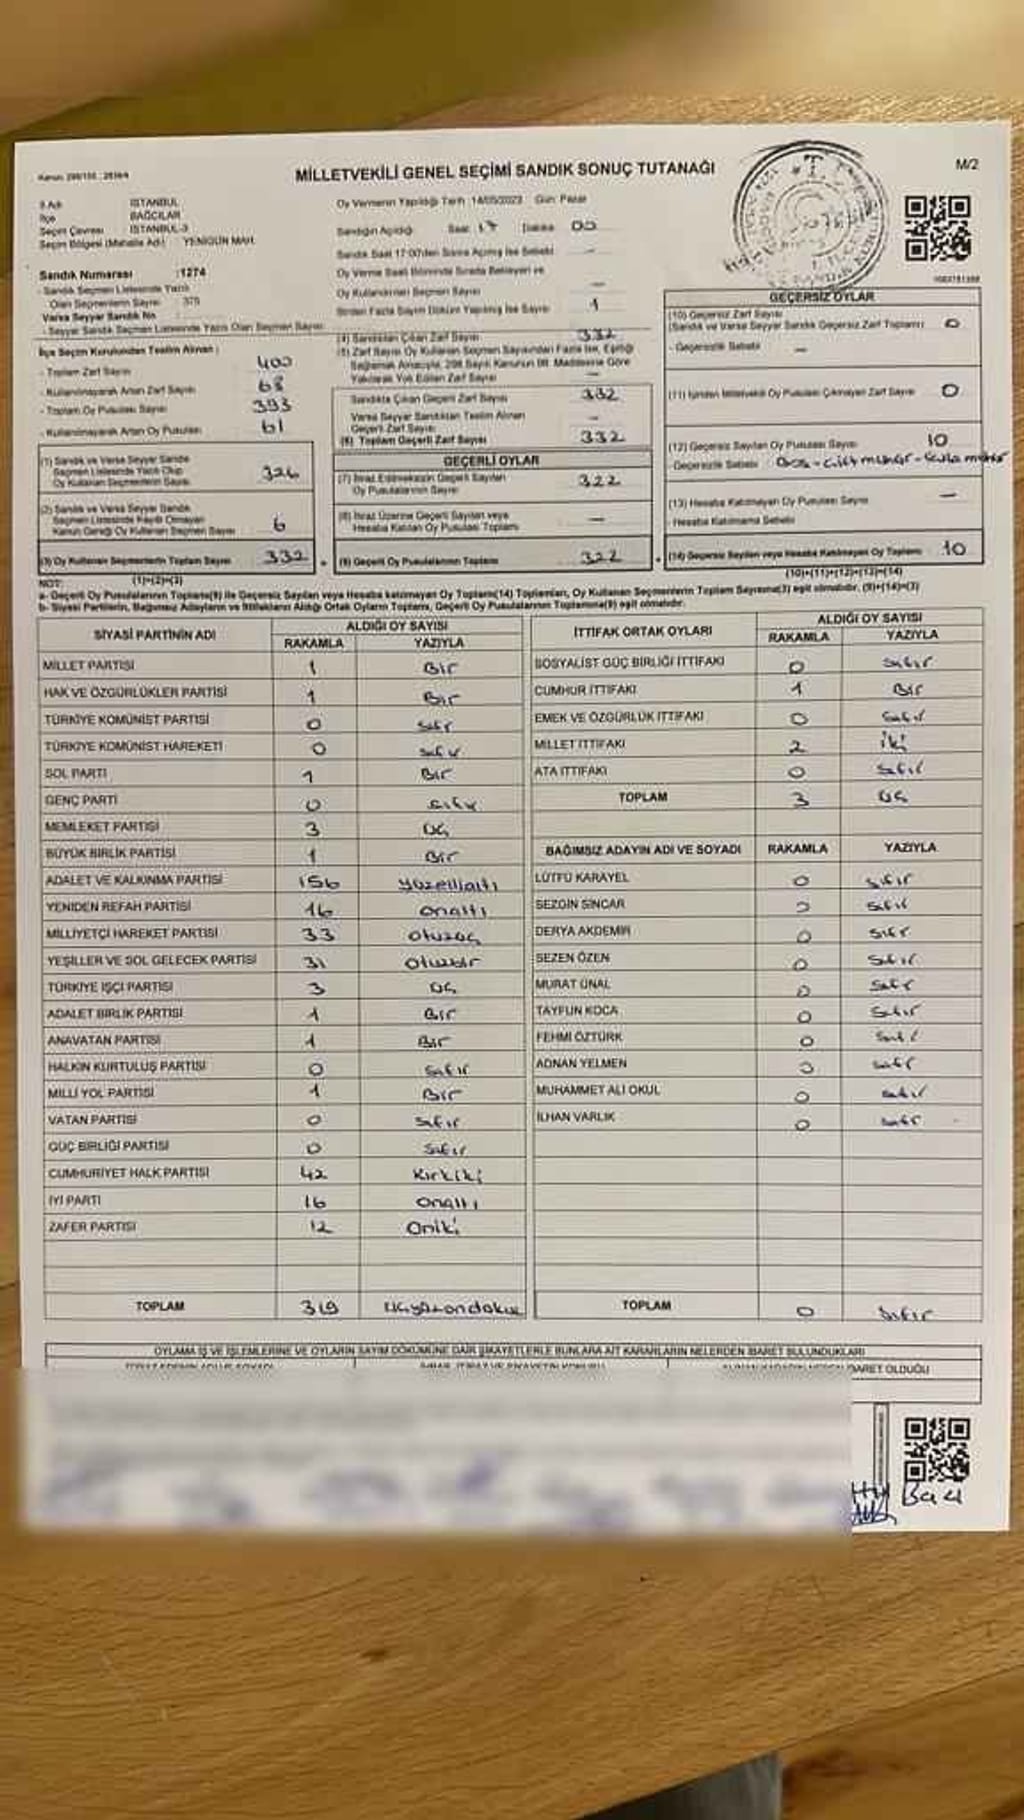 MİLLETVEKİLİ GENEL SEÇİMİ SANDIK SONUÇ TUTANAĞI
M/2
İl Adı İSTANBUL
İlçe BAĞCILAR
Seçim Çevresi İSTANBUL-3
Seçim Bölgesi (Mahalle Adı) YENİGÜN MAH.
Sandık Numarası :1274
- Sandık Seçmen Listesinde Yazılı
Olan Seçmenlerin Sayısı 375
Varsa Seyyar Sandık No
- Seyyar Sandık Seçmen Listesinde Yazılı Olan Seçmen Sayısı
İlçe Seçim Kurulundan Teslim Alınan :
- Toplam Zarf Sayısı 400
- Kullanılmayarak Artan Zarf Sayısı 68
- Toplam Oy Pusulası Sayısı 393
- Kullanılmayarak Artan Oy Pusulası 61
(1) Sandık ve Varsa Seyyar Sandık
Seçmen Listesinde Yazılı Olup
Oy Kullanan Seçmenlerin Sayısı 326
(2) Sandık ve Varsa Seyyar Sandık
Seçmen Listesinde Kayıtlı Olmayan
Kanun Gereği Oy Kullanan Seçmen Sayısı 6
(3) Oy Kullanan Seçmenlerin Toplam Sayısı 332
(1)+(2)=(3)
Oy Vermenin Yapıldığı Tarih 14/05/2023 Gün: Pazar
Sandığın Açıldığı Saat 17 Dakika 00
Sandık Saat 17:00'den Sonra Açılmış İse Sebebi —
Oy Verme Saati Bitiminde Sırada Bekleyen ve
Oy Kullandırılan Seçmen Sayısı —
Birden Fazla Sayım Döküm Yapılmış İse Sayısı 1
(4) Sandıktan Çıkan Zarf Sayısı 332
(5) Zarf Sayısı Oy Kullanan Seçmen Sayısından Fazla İse, Eşitliği
Sağlamak Amacıyla, 298 Sayılı Kanunun 98. Maddesine Göre
Yakılarak Yok Edilen Zarf Sayısı —
Sandıkta Çıkan Geçerli Zarf Sayısı 332
Varsa Seyyar Sandıktan Teslim Alınan
Geçerli Zarf Sayısı —
(6) Toplam Geçerli Zarf Sayısı 332
GEÇERLİ OYLAR
(7) İtiraz Edilmeksizin Geçerli Sayılan
Oy Pusulalarının Sayısı 322
(8) İtiraz Üzerine Geçerli Sayılan veya
Hesaba Katılan Oy Pusulası Toplamı —
(9) Geçerli Oy Pusulalarının Toplamı 322
GEÇERSİZ OYLAR
(10) Geçersiz Zarf Sayısı
(Sandık ve Varsa Seyyar Sandık Geçersiz Zarf Toplamı) 0
- Geçersizlik Sebebi —
(11) İçinden Milletvekili Oy Pusulası Çıkmayan Zarf Sayısı 0
(12) Geçersiz Sayılan Oy Pusulası Sayısı 10
Geçersizlik Sebebi
(13) Hesaba Katılmayan Oy Pusulası Sayısı —
Hesaba Katılmama Sebebi
(14) Geçersiz Sayılan veya Hesaba Katılmayan Oy Toplamı 10
(10)+(11)+(12)+(13)=(14)
NOT:
a- Geçerli Oy Pusulalarının Toplamı(9) ile Geçersiz Sayılan veya Hesaba katılmayan Oy Toplamı(14) Toplamları, Oy Kullanan Seçmenlerin Toplam Sayısına(3) eşit olmalıdır. (9)+(14)=(3)
b- Siyasi Partilerin, Bağımsız Adayların ve İttifakların Aldığı Ortak Oyların Toplamı, Geçerli Oy Pusulalarının Toplamına(9) eşit olmalıdır.
SİYASİ PARTİNİN ADI ALDIĞI OY SAYISI
RAKAMLA YAZIYLA
MİLLET PARTİSİ 1 Bir
HAK VE ÖZGÜRLÜKLER PARTİSİ 1 Bir
TÜRKİYE KOMÜNİST PARTİSİ 0 sıfır
TÜRKİYE KOMÜNİST HAREKETİ 0 sıfır
SOL PARTİ 1 Bir
GENÇ PARTİ 0 sıfır
MEMLEKET PARTİSİ 3 üç
BÜYÜK BİRLİK PARTİSİ 1 Bir
ADALET VE KALKINMA PARTİSİ 156 yüzellialtı
YENİDEN REFAH PARTİSİ 16 onaltı
MİLLİYETÇİ HAREKET PARTİSİ 33 otuzüç
YEŞİLLER VE SOL GELECEK PARTİSİ 31 otuzbir
TÜRKİYE İŞÇİ PARTİSİ 3 üç
ADALET BİRLİK PARTİSİ 1 Bir
ANAVATAN PARTİSİ 1 Bir
HALKIN KURTULUŞ PARTİSİ 0 sıfır
MİLLİ YOL PARTİSİ 1 Bir
VATAN PARTİSİ 0 sıfır
GÜÇ BİRLİĞİ PARTİSİ 0 sıfır
CUMHURİYET HALK PARTİSİ 42 Kırkiki
İYİ PARTİ 16 onaltı
ZAFER PARTİSİ 12 Oniki
TOPLAM 319 üçyüzondokuz
İTTİFAK ORTAK OYLARI ALDIĞI OY SAYISI
RAKAMLA YAZIYLA
SOSYALİST GÜÇ BİRLİĞİ İTTİFAKI 0 sıfır
CUMHUR İTTİFAKI 1 Bir
EMEK VE ÖZGÜRLÜK İTTİFAKI 0 sıfır
MİLLET İTTİFAKI 2 iki
ATA İTTİFAKI 0 sıfır
TOPLAM 3 üç
BAĞIMSIZ ADAYIN ADI VE SOYADI RAKAMLA YAZIYLA
LÜTFÜ KARAYEL 0 sıfır
SEZGİN SİNCAR 0 sıfır
DERYA AKDEMİR 0 sıfır
SEZEN ÖZEN 0 sıfır
MURAT ÜNAL 0 sıfır
TAYFUN KOCA 0 sıfır
FEHMİ ÖZTÜRK 0 sıfır
ADNAN YELMEN 0 sıfır
MUHAMMET ALİ OKUL 0 sıfır
İLHAN VARLIK 0 sıfır
TOPLAM 0 sıfır
OYLAMA İŞ VE İŞLEMLERİNE VE OYLARIN SAYIM DÖKÜMÜNE DAİR ŞİKAYETLERLE BUNLARA AİT KARARLARIN NELERDEN İBARET BULUNDUKLARI